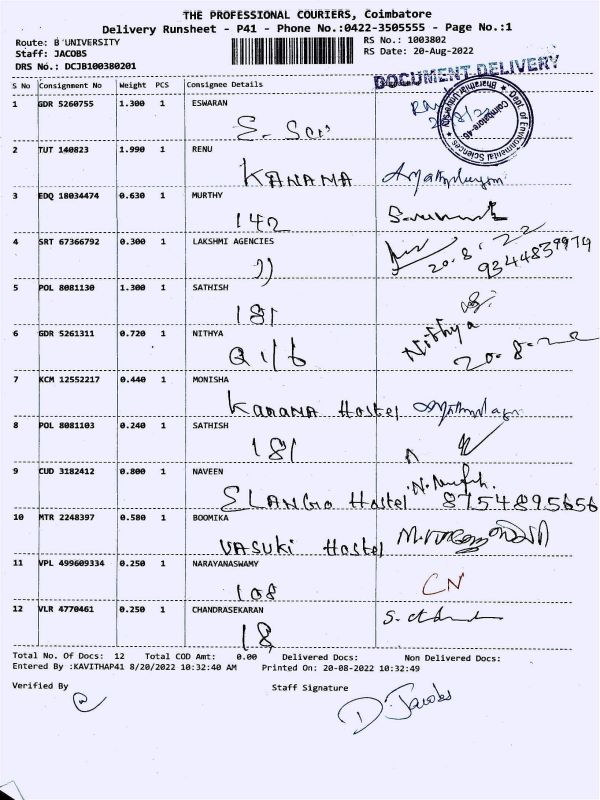 THE PROFESSIONAL COURIERS, Coimbatore
Delivery Runsheet - P41 - Phone No.:0422-3505555 - Page No.:1
Route: B'UNIVERSITY
RS No.: 1003802
Staff: JACOBS
RS Date: 20-Aug-2022
DRS No.: DCJB100380201
DOCUMENT DELIVERY
S No Consignment No Weight PCS Consignee Details
Dept. of Environmental Sciences ★ Bharathiar University ★
Coimbatore-46
1 GDR 5260755 1.300 1 ESWARAN
2 TUT 140823 1.990 1 RENU
KANAMA
3 EDQ 18034474 0.630 1 MURTHY
142
4 SRT 67366792 0.300 1 LAKSHMI AGENCIES
20.8.22
9344839974
5 POL 8081130 1.300 1 SATHISH
181
6 GDR 5261311 0.720 1 NITHYA
Nithya
Q1/6
7 KCM 12552217 0.440 1 MONISHA
KANANA Hostel
8 POL 8081103 0.240 1 SATHISH
181
9 CUD 3182412 0.800 1 NAVEEN
ELANGO Hostel 8754895656
10 MTR 2248397 0.580 1 BOOMIKA
VASUKI Hostel
11 VPL 499609334 0.250 1 NARAYANASWAMY
108 CN
12 VLR 4770461 0.250 1 CHANDRASEKARAN
18
Total No. Of Docs: 12 Total COD Amt: 0.00 Delivered Docs: Non Delivered Docs:
Entered By :KAVITHAP41 8/20/2022 10:32:40 AM Printed On: 20-08-2022 10:32:49
Verified By Staff Signature
D. Jacobs